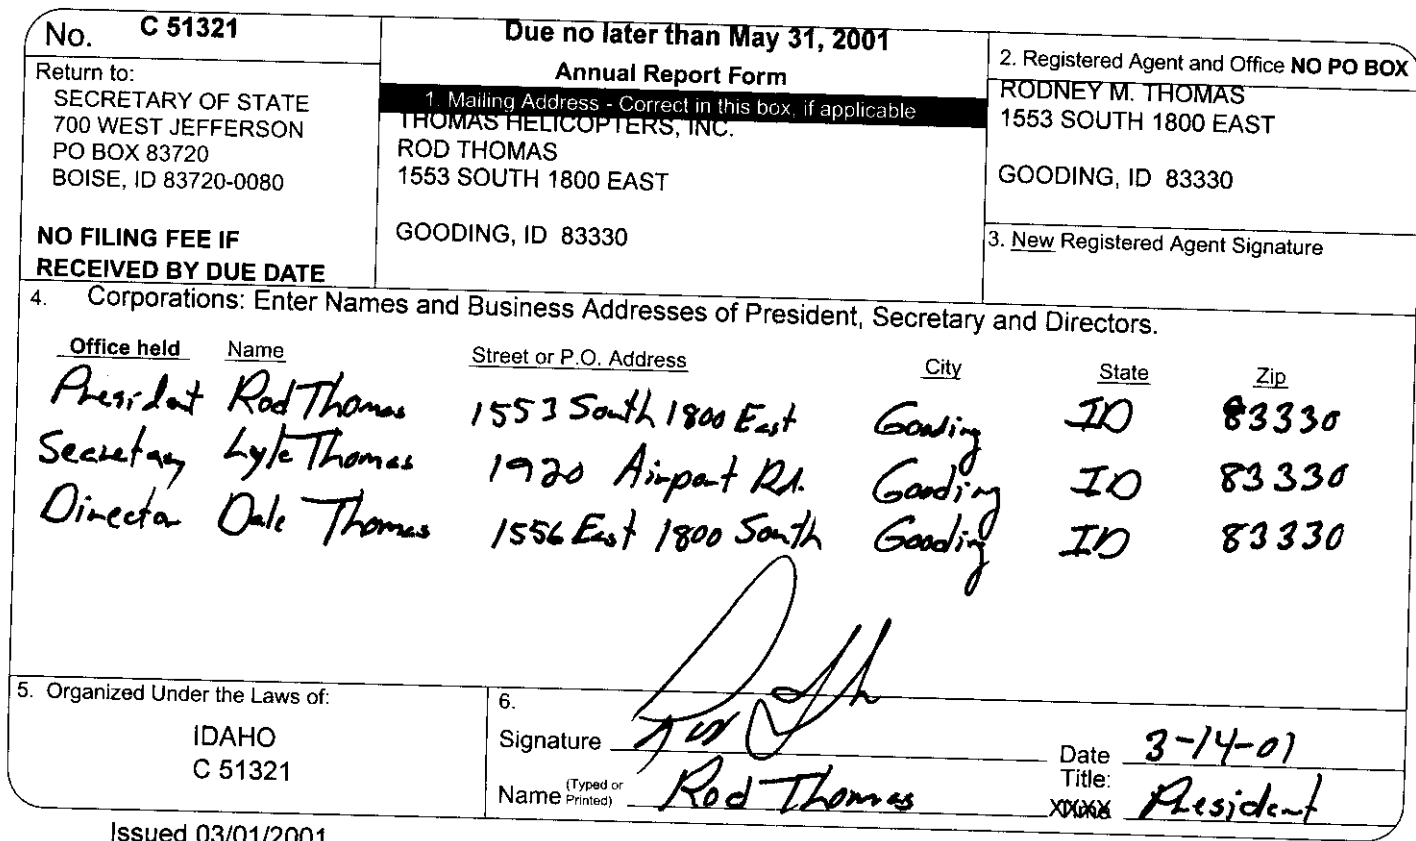 No. C 51321
Return to:
SECRETARY OF STATE
700 WEST JEFFERSON
PO BOX 83720
BOISE, ID 83720-0080
NO FILING FEE IF
RECEIVED BY DUE DATE
Due no later than May 31, 2001
Annual Report Form
1. Mailing Address - Correct in this box, if applicable
THOMAS HELICOPTERS, INC.
ROD THOMAS
1553 SOUTH 1800 EAST
GOODING, ID 83330
2. Registered Agent and Office NO PO BOX
RODNEY M. THOMAS
1553 SOUTH 1800 EAST
GOODING, ID 83330
3. New Registered Agent Signature
4. Corporations: Enter Names and Business Addresses of President, Secretary and Directors.
Office held Name Street or P.O. Address City State Zip
President Rod Thomas 1553 South 1800 East Gooding ID 83330
Secretary Lyle Thomas 1920 Airport Rd. Gooding ID 83330
Director Dale Thomas 1556 East 1800 South Gooding ID 83330
5. Organized Under the Laws of:
IDAHO
C 51321
6.
Signature
Date 3-14-01
Name (Typed or Printed) Rod Thomas
Title: President
Issued 03/01/2001